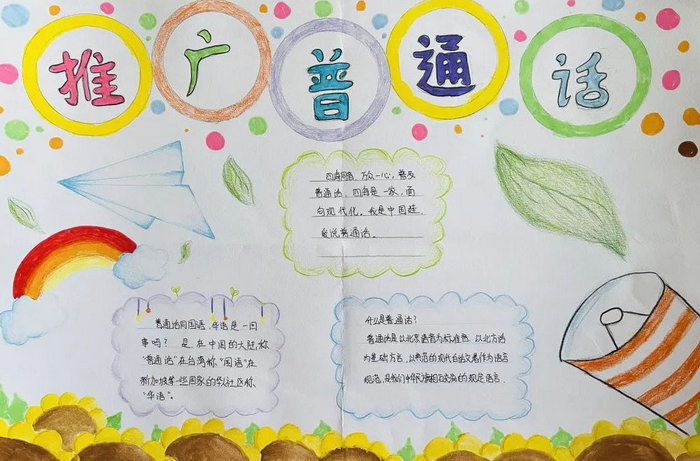 推广普通话
四海同音,万众一心,普及
普通话,四海是一家,面
向现代化,我是中国娃,
爱说普通话。
普通话同国语、华语是一回
事吗? 是,在中国的大陆,称
"普通话"在台湾称"国语"在
新加坡等一些国家的华人社区称
"华语"。
什么是普通话?
普通话是以北京语音为标准音,以北方话
为基础方言,以典范的现代白话文著作为语言
规范,是我们中华民族相互交流的规范语言.